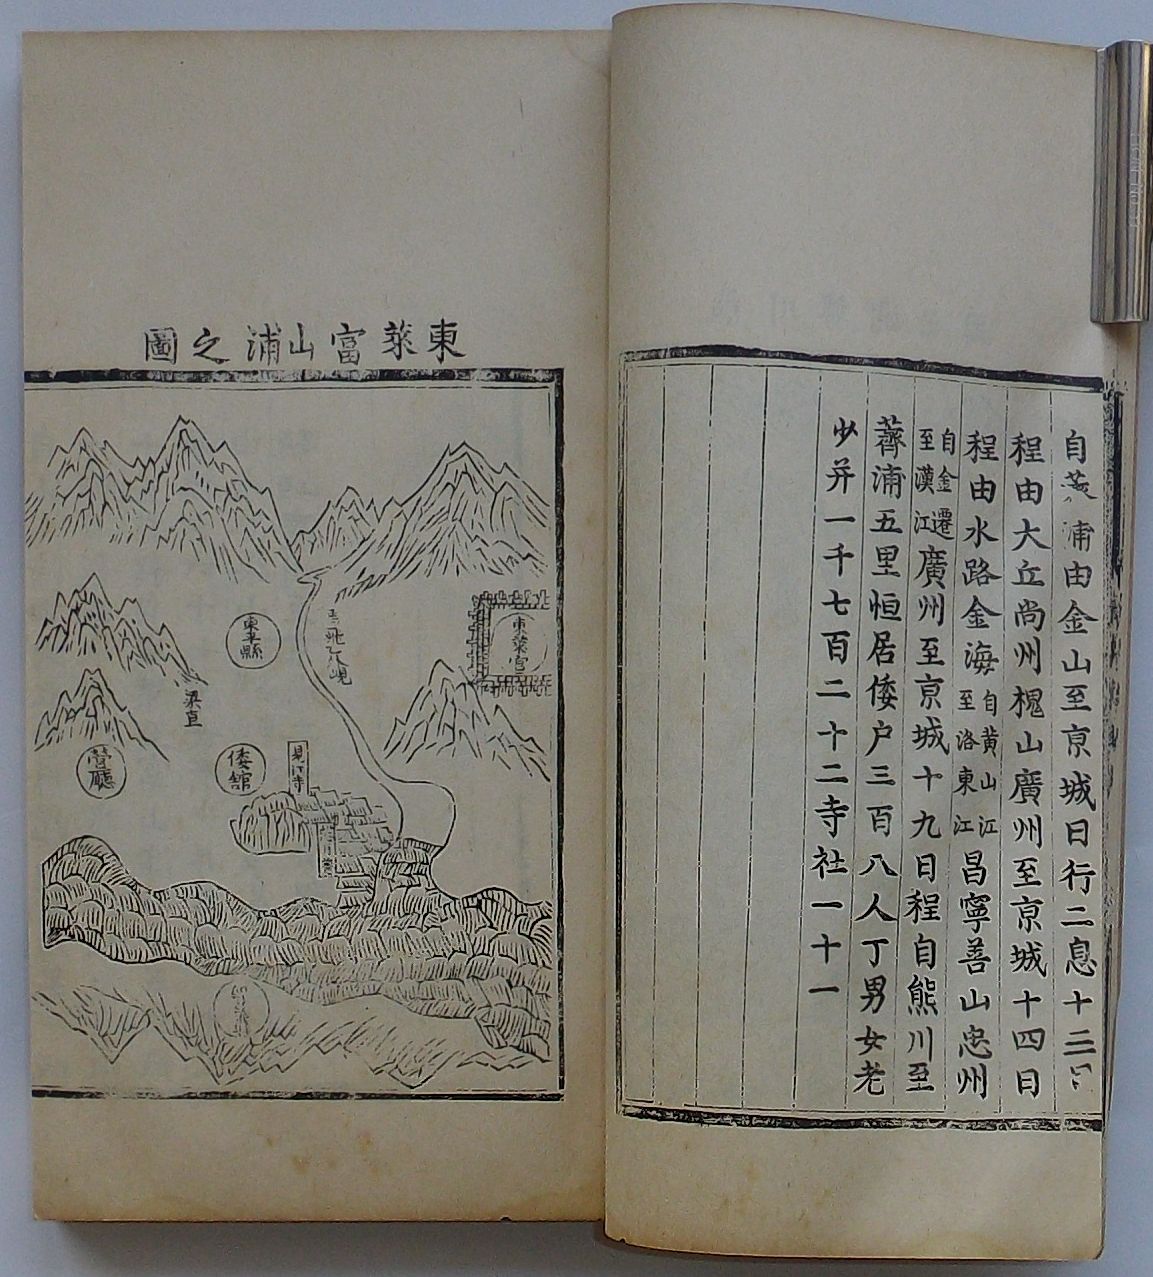 自 浦由金山至京城日行二息十三日
程由大丘尚州槐山廣州至京城十四日
程由水路金海自黄山江至洛東江昌寧善山忠州
自金遷至漢江廣州至京城十九日程自熊川至
薺浦五里恒居倭户三百八人丁男女老
少并一千七百二十二寺社一十一
東萊富山浦之圖
東萊官
東平縣
見江寺
倭舘
營廳